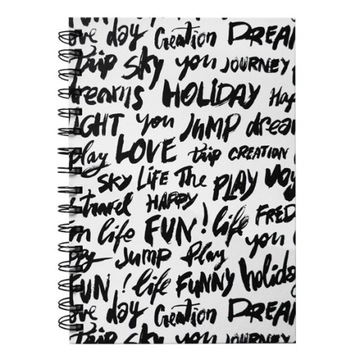 ove day Creation DREAM
trip SKY you JOURNEY
reams HOLIDAY Hap
IGHT you JUMP dream
play LOVE trip CREATION
SKY LiFE The PLAY
travel HAPPY
m life FUN! life FRED
JUMP Play you
FUN! life FUNNY holiday
ove day Creation DREAM
trip SKY you JOURNEY